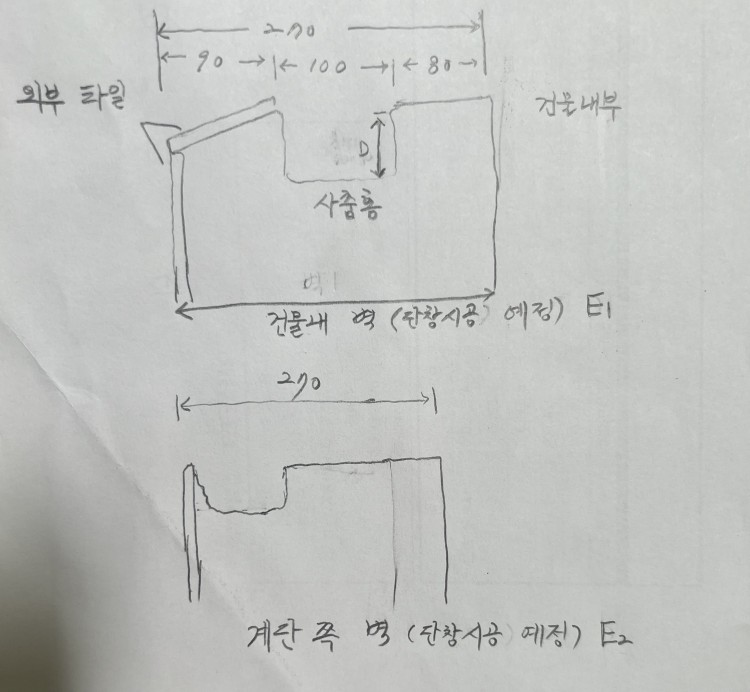 270
90 100 80
외부 타일
건물내부
D
사춤홈
건물내 벽 (단창시공 예정) E1
270
계단 쪽 벽 (단창시공 예정) E2